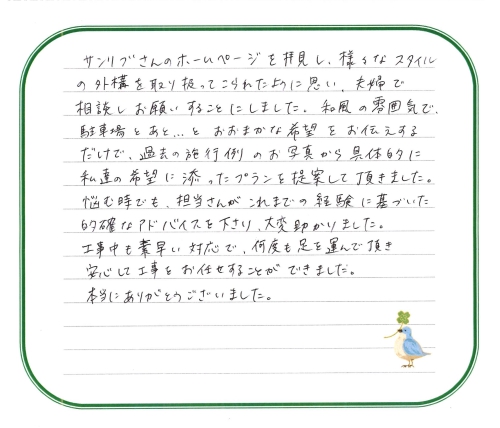 サンリブさんのホームページを拝見し、様々なスタイル
の外構を取り扱ってこられたように思い、夫婦で
相談しお願いすることにしました。和風の雰囲気で、
駐車場とあと…とおおまかな希望をお伝えする
だけで、過去の施行例のお写真から具体的に
私達の希望に添ったプランを提案して頂きました。
悩む時でも、担当さんがこれまでの経験に基づいた
的確なアドバイスを下さり、大変助かりました。
工事中も素早い対応で、何度も足を運んで頂き
安心して工事をお任せすることができました。
本当にありがとうございました。